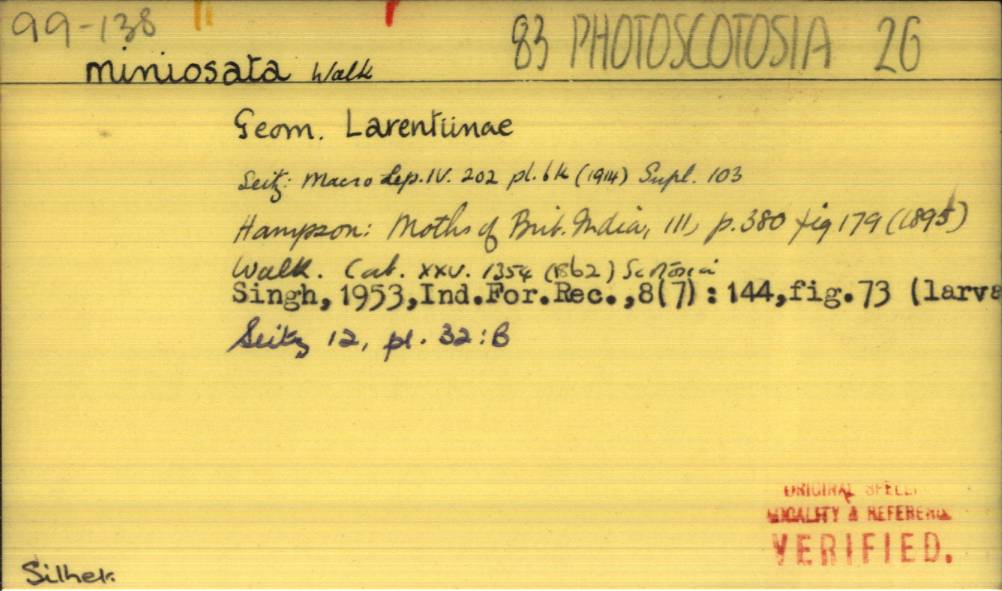 99-138
83 PHOTOSCOTOSIA 26
miniosata Walk
Geom. Larentiinae
Seitz: Macro Lep. IV. 202 pl. 6k (1914) Supl. 103
Hampson: Moths of Brit. India, III, p. 380 fig 179 (1895)
Walk. Cat. XXV. 1354 (1862) Scotosia
Singh, 1953, Ind. For. Rec., 8(7): 144, fig. 73 (larva
Seitz 12, pl. 32:B
ORIGINAL SPELL
LOCALITY & REFERENCE
VERIFIED.
Silhet.